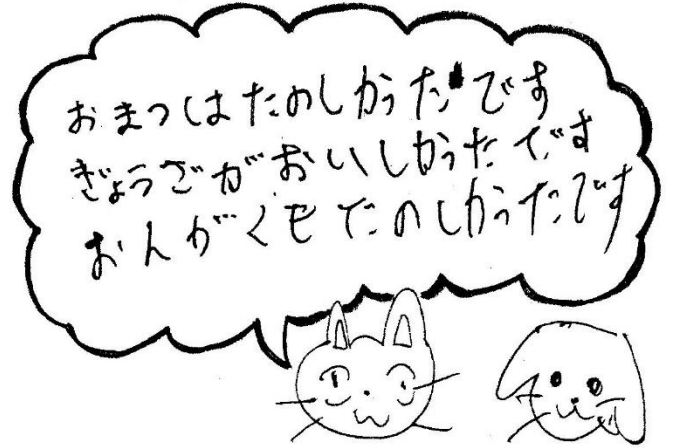 おまつはたのしかったです
ぎょうざがおいしかったです
おんがくもたのしかったです